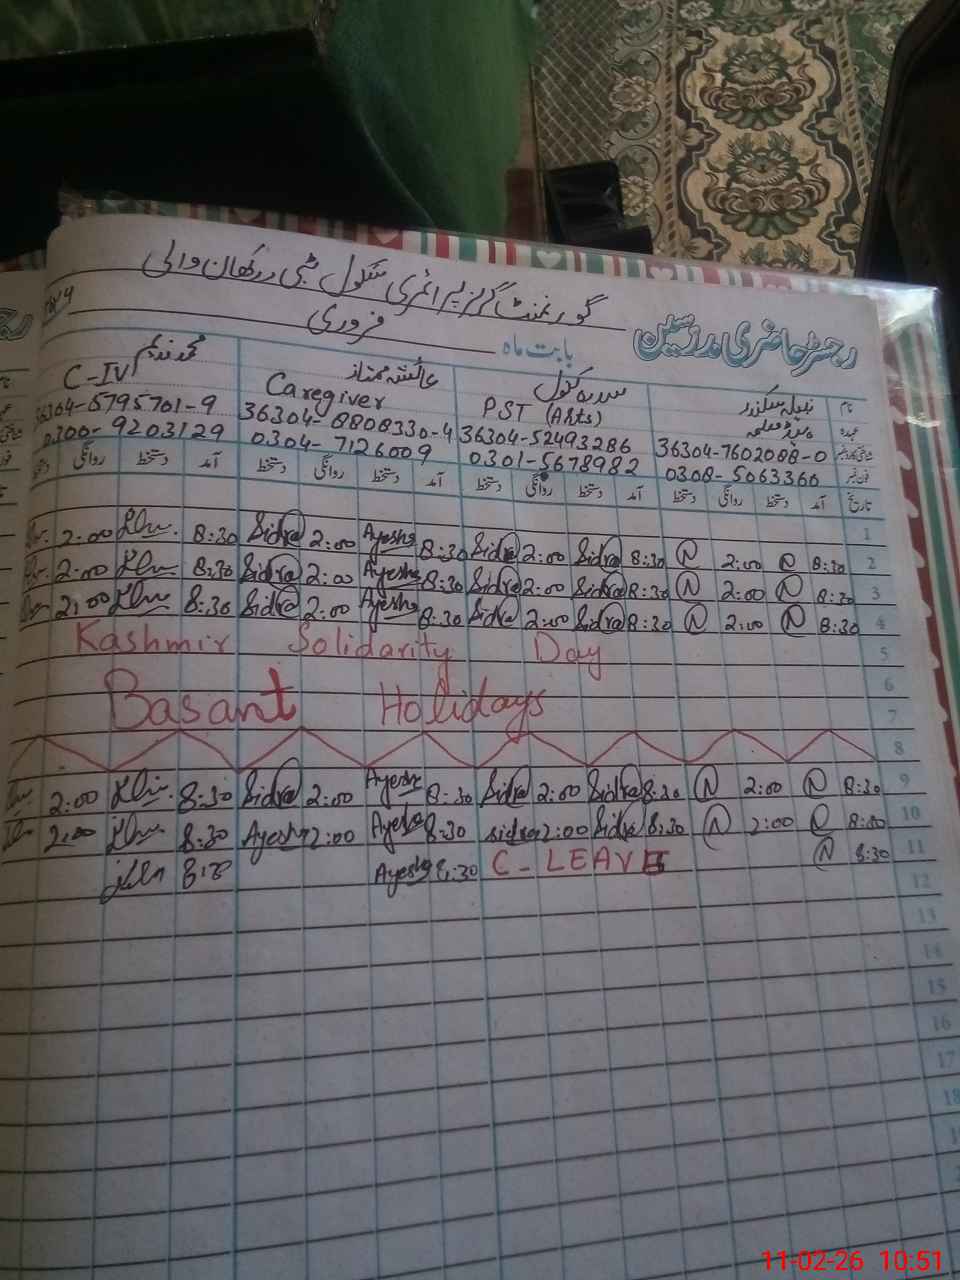 گورنمنٹ گرلز پرائمری سکول بٹی درکھان والی
رجسٹر حاضری مدرسین
بابت ماہ فروری
نام نبیلہ سکندر سدرہ کنول عائشہ ممتاز محمد ندیم
عہدہ ہیڈ معلمہ PST (Arts) Caregiver C-IV
36304-7602088-0 36304-52493286 36304-8808330-4 36304-5795701-9
فون نمبر 0308-5063360 0301-5678982 0304-7126009 0300-9203129
تاریخ آمد دستخط روانگی دستخط آمد دستخط روانگی دستخط آمد دستخط روانگی دستخط آمد دستخط روانگی دستخط
1
2 8:30 N 2:00 N 8:30 Sidra 2:00 Sidra 8:30 Ayesha 2:00 Sidra 8:30 2:00
3 8:30 N 2:00 N 8:30 Sidra 2:00 Sidra 8:30 Ayesha 2:00 Sidra 8:30 2:00
4 8:30 N 2:00 N 8:30 Sidra 2:00 Sidra 8:30 Ayesha 2:00 Sidra 8:30 2:00
5 Kashmir Solidarity Day
6
7 Basant Holidays
8
9 8:30 N 2:00 N 8:30 Sidra 2:00 Sidra 8:30 Ayesha 2:00 Sidra 8:30 2:00
10 8:30 N 2:00 N 8:30 Sidra 2:00 sidra 8:30 Ayesha 2:00 Ayesha 8:30 2:00
11 8:30 N C-LEAVE 8:30 Ayesha
12
13
14
15
16
17
18
11-02-26 10:51